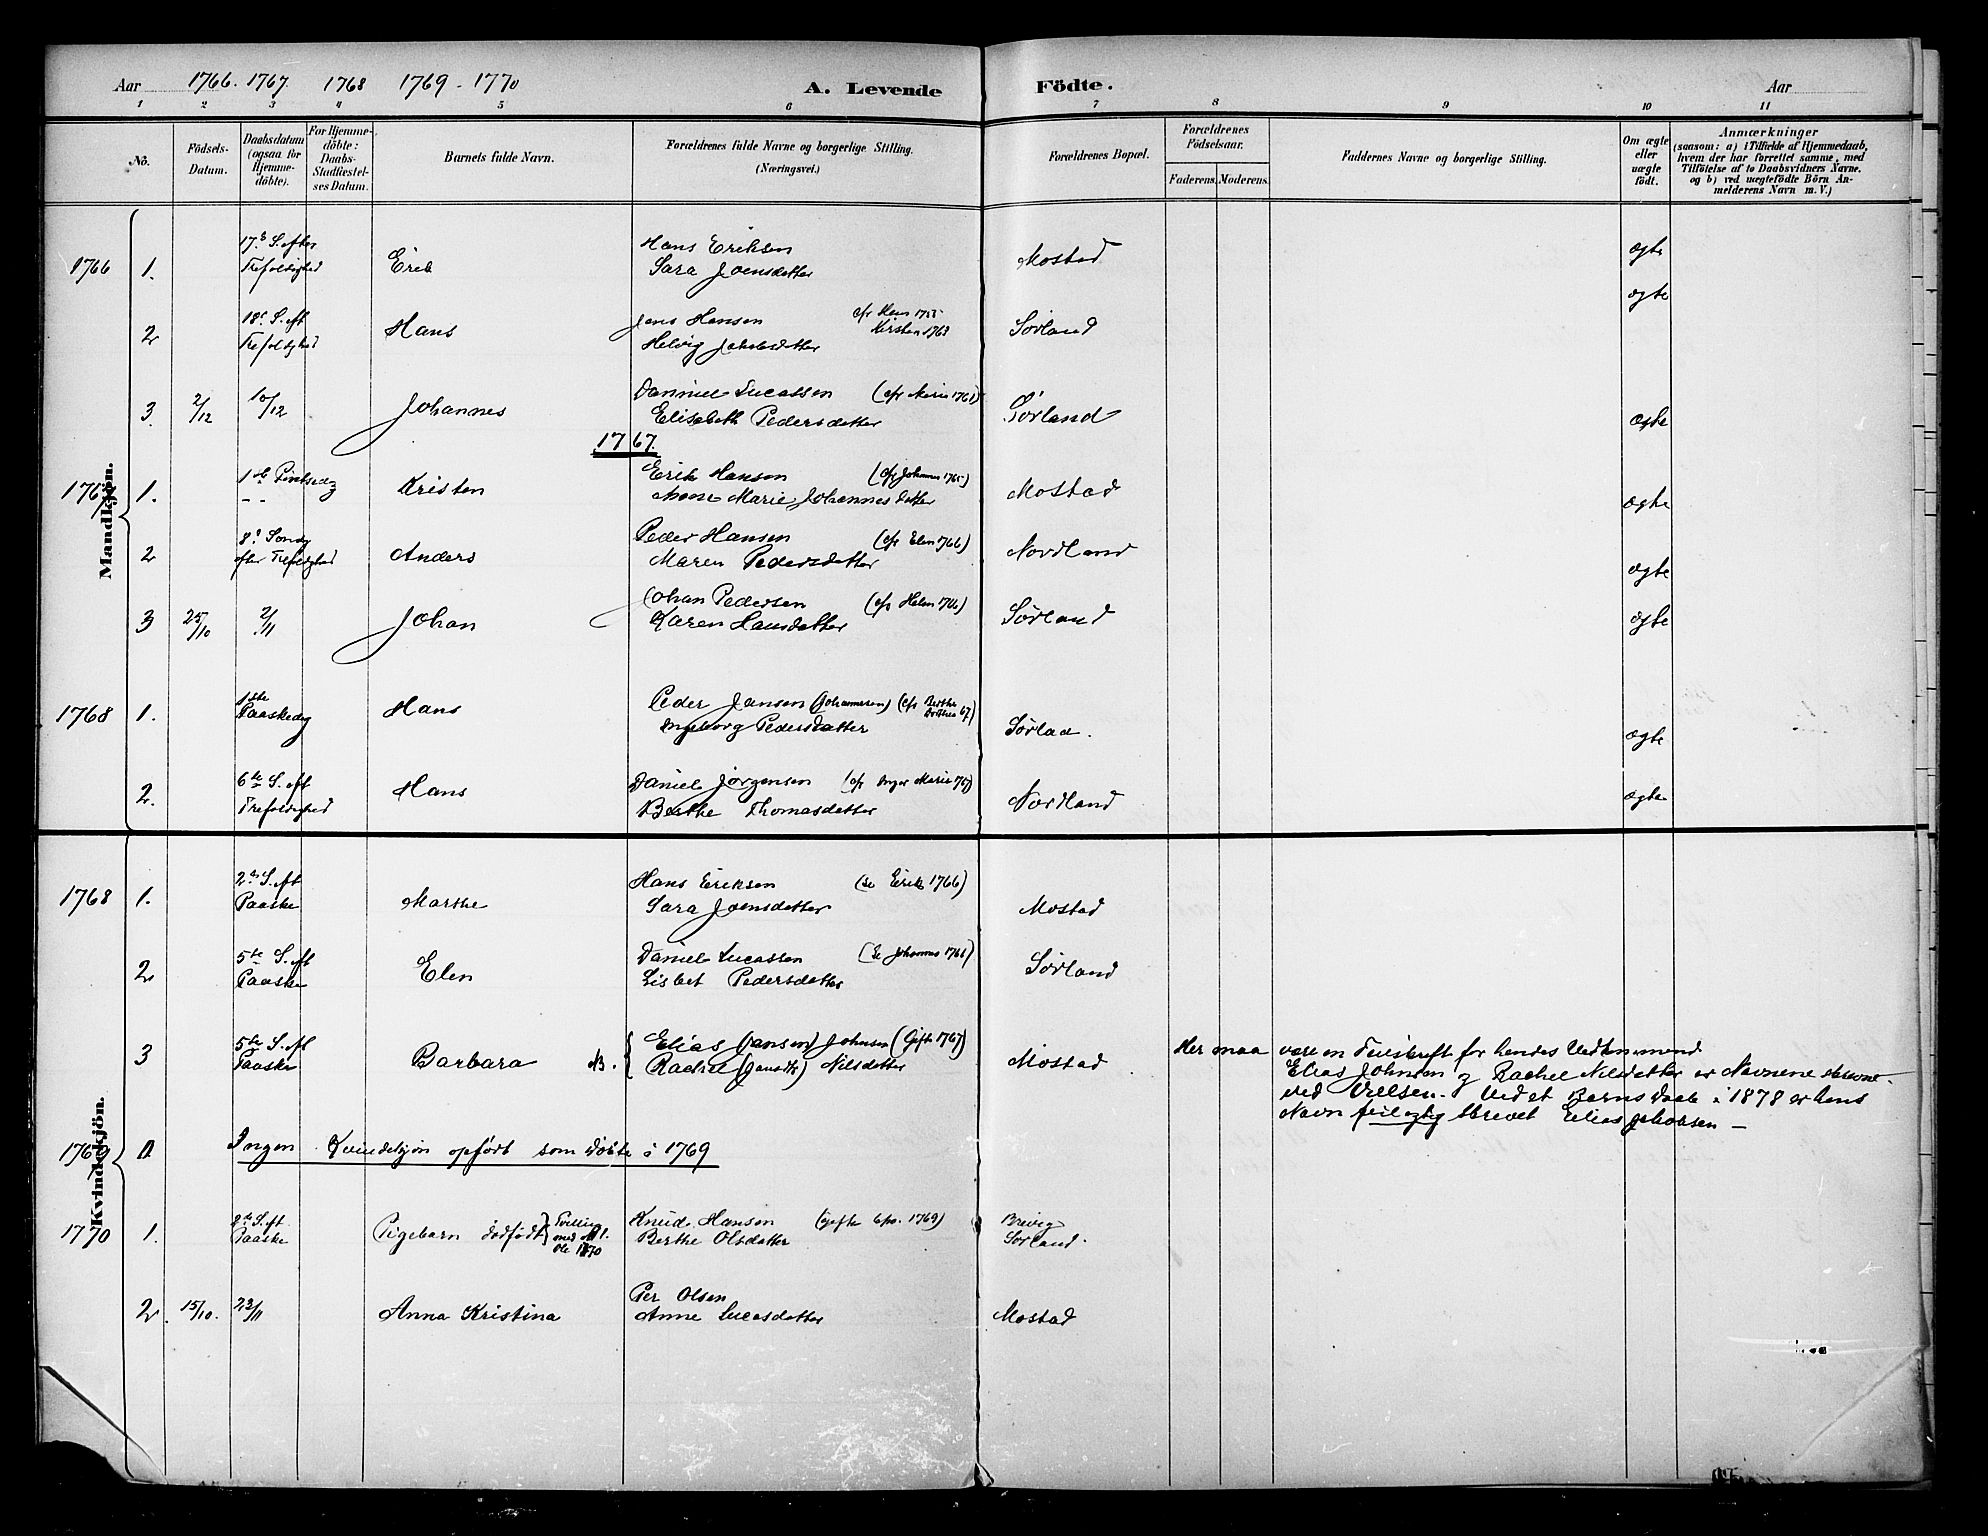 Aar 1766. 1767. 1768 1769 - 1770 A. Levende Födte. Aar
1 2 3 4 5 6 7 8 9 10 11
No. Födsels-Datum. Daabsdatum (ogsaa for Hjemme-döbte). For Hjemme-döbte: Daabs-Stadfæstel-ses Datum. Barnets fulde Navn. Forældrenes fulde Navne og borgerlige Stilling. (Næringsvei.) Forældrenes Bopæl. Forældrenes Födselsaar. Faderens. Moderens. Faddernes Navne og borgerlige Stilling. Om ægte eller uægte födt. Anmærkninger (saasom: a) i Tilfælde af Hjemmedaab, hvem der har forrettet samme, med Tilföielse af to Daabsvidners Navne, og b) ved uægtefödte Börn An-melderens Navn m. V.)
Mandkjön.
17. S. efter Hans Eriksen ægte
1766 1. Trefoldighed Erik Sara Joensdatter Mostad
18. S. eft Jens Hansen cfr Hans 1755 ægte
2 Trefoldighed Hans Helvig Jakobsdatter Kirsten 1763 Sörland
3. 2/12 10/12 Johannes Danniel Lucassen (cfr Marie 1761) Sörland ægte
Elisabeth Pedersdatter
1767.
1767 1. 1ste Pintsedag Kristen Erik Hansen (cfr Johannes 1765) Mostad ægte
- - Anne Marie Johannesdatter
2 8. Sondg Anders Peder Hansen (cfr Elen 1766) Nordland ægte
efter Trefoldighed Maren Pedersdatter
3 25/10 2/11 Johan Johan Pedersen (cfr Helen 1766) Sörland ægte
Karen Hansdatter
1768 1. 1ste Paaskedag Hans Peder Jansen (Johannesen) (cfr Berthe Dorthea 67) Sörlad. ægte
Ingeborg Pedersdatter
2. 6te S. eft Hans Daniel Jörgensen (cfr Inger Marie 1767) Nordland ægte
Trefoldighed Berthe Thomasdatter
Kvindekjön.
1768 1. 2den S. eft Marthe Hans Eriksen (se Erik 1766) Mostad
Paaske Sara Joensdatter
2 5te S. eft Elen Daniel Lucassen (Se Johannes 1766) Sörland
Paaske Lisbet Pedersdatter
3 5te S. eft Barbara NB. Elias (Jansen) Johnsen (Gift 1767) Mostad Her maa være en Feilskrift for hendes Vedkommend
Paaske Rachel (Jansdtr) Nilsdatter Elias Johnsen og Rachel Nilsdatter er Navnene skrevne
ved Vielsen. Ved et Barns Daab i 1878 er hans
Navn feilagtig skrevet Elias Johansen —
1769 0 Ingen Kvindekjön opfört som Döbte i 1769
1770 1. 2den S. eft Pigebarn dödfödt Tvilling med No 1. Ole 1770 Knud Hansen (gifte 1769) Brevig
Paaske Berthe Olsdatter Sörland.
2. 15/10. 23/11 Anna Kristina Per Olsen Mostad
Anne Lucasdatter